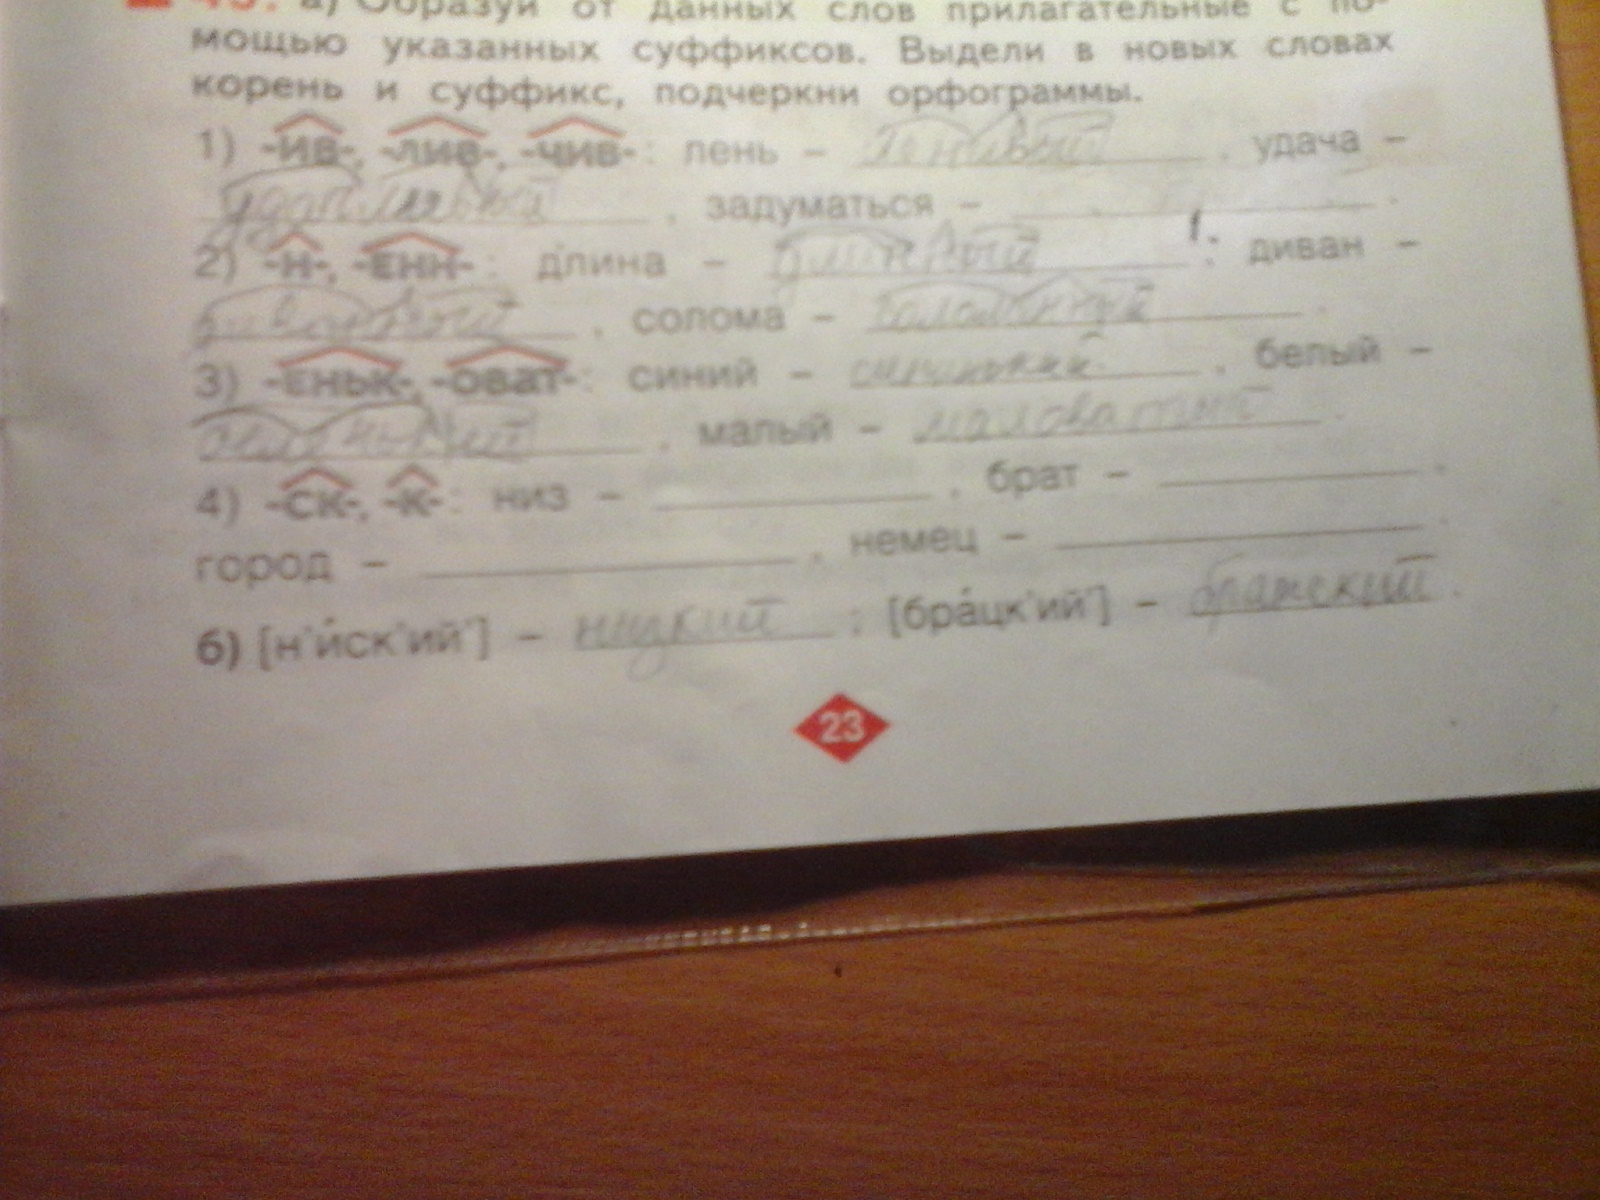 а) Образуй от данных слов прилагательные с по-
мощью указанных суффиксов. Выдели в новых словах
корень и суффикс, подчеркни орфограммы.
1) -ИВ-, -ЛИВ-, -ЧИВ-: лень – ленивый, удача –
удачливый, задуматься – .
2) -Н-, -ЕНН-: длина – длинный; диван –
диванный, солома – соломенный.
3) -ЕНЬК-, -ОВАТ-: синий – синенький, белый –
беленький, малый – маловатый.
4) -СК-, -К-: низ – , брат – .
город – , немец – .
б) [н'иск'ий'] – низкий; [бра́цк'ий'] – братский.
23